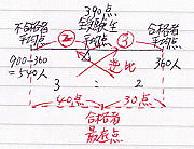 390点
全受験生
平均点
不合格者
平均点
合格者
平均点
② ③
900-360
=540人
逆比
360人
3 : 2
40点 30点
合格者
最低点